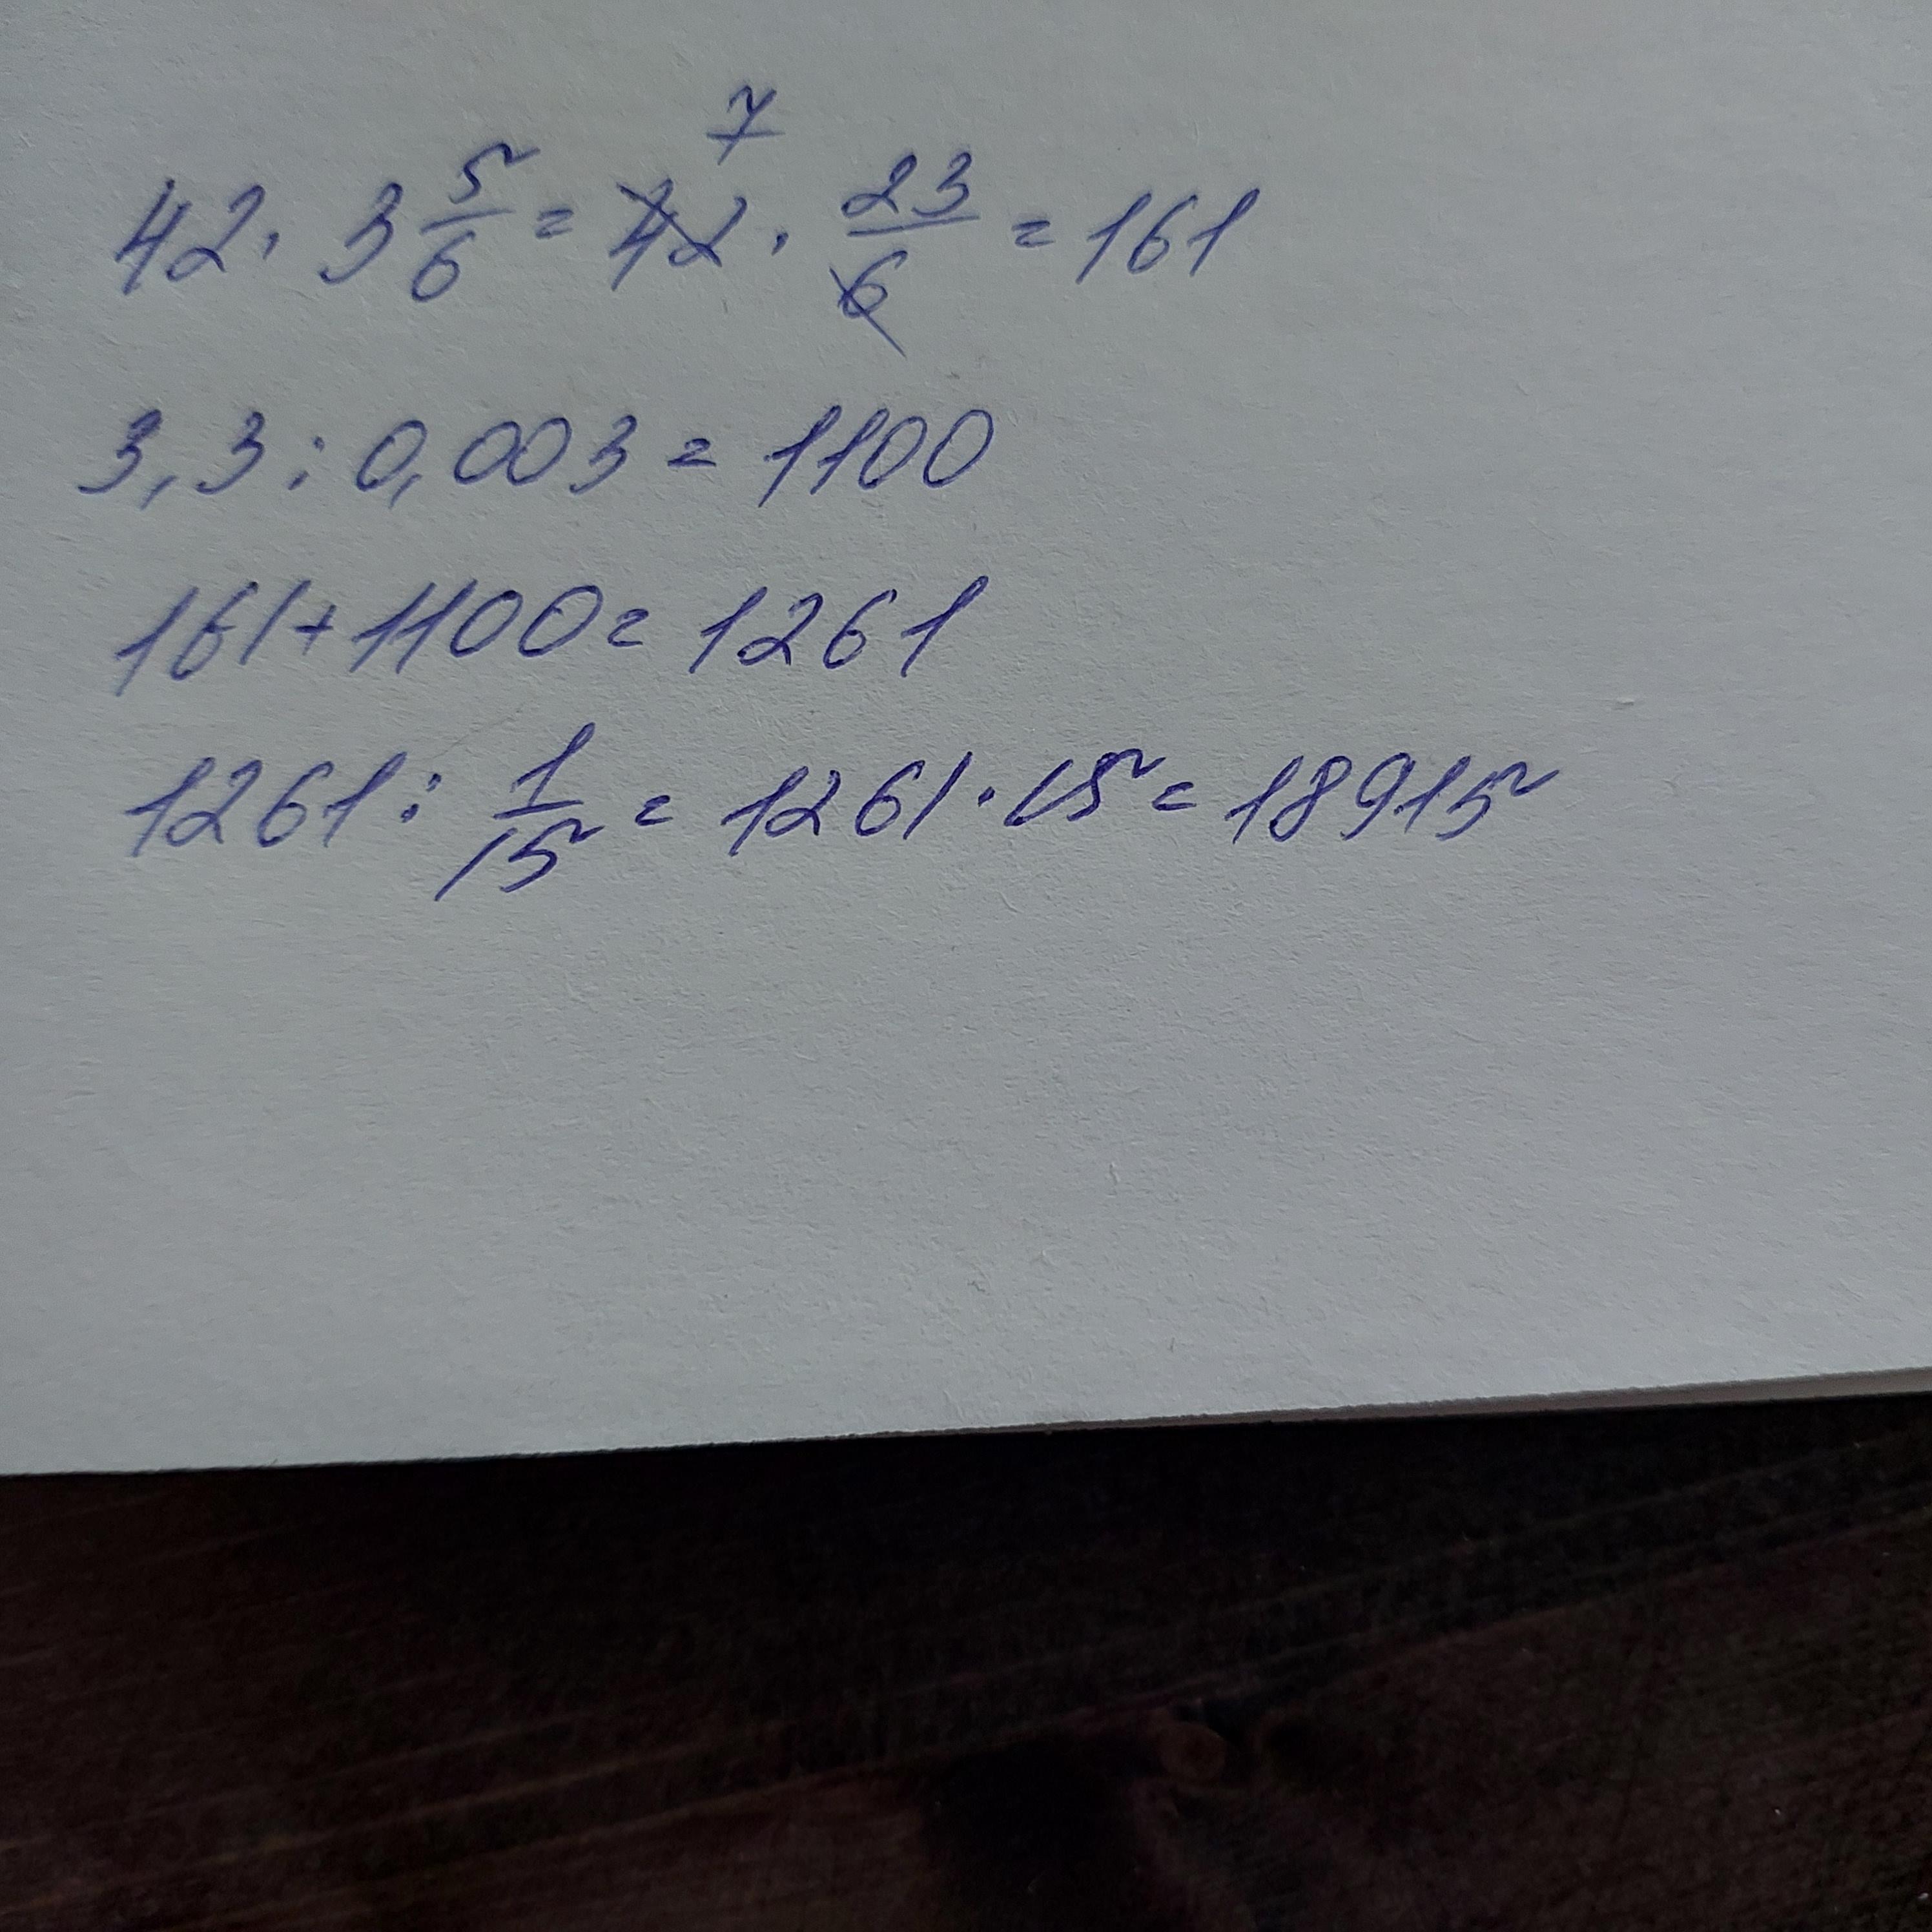 42 · 3 5/6 = 42 7 · 23/6 = 161
3,3 : 0,003 = 1100
161 + 1100 = 1261
1261 : 1/15 = 1261 · 15 = 18915